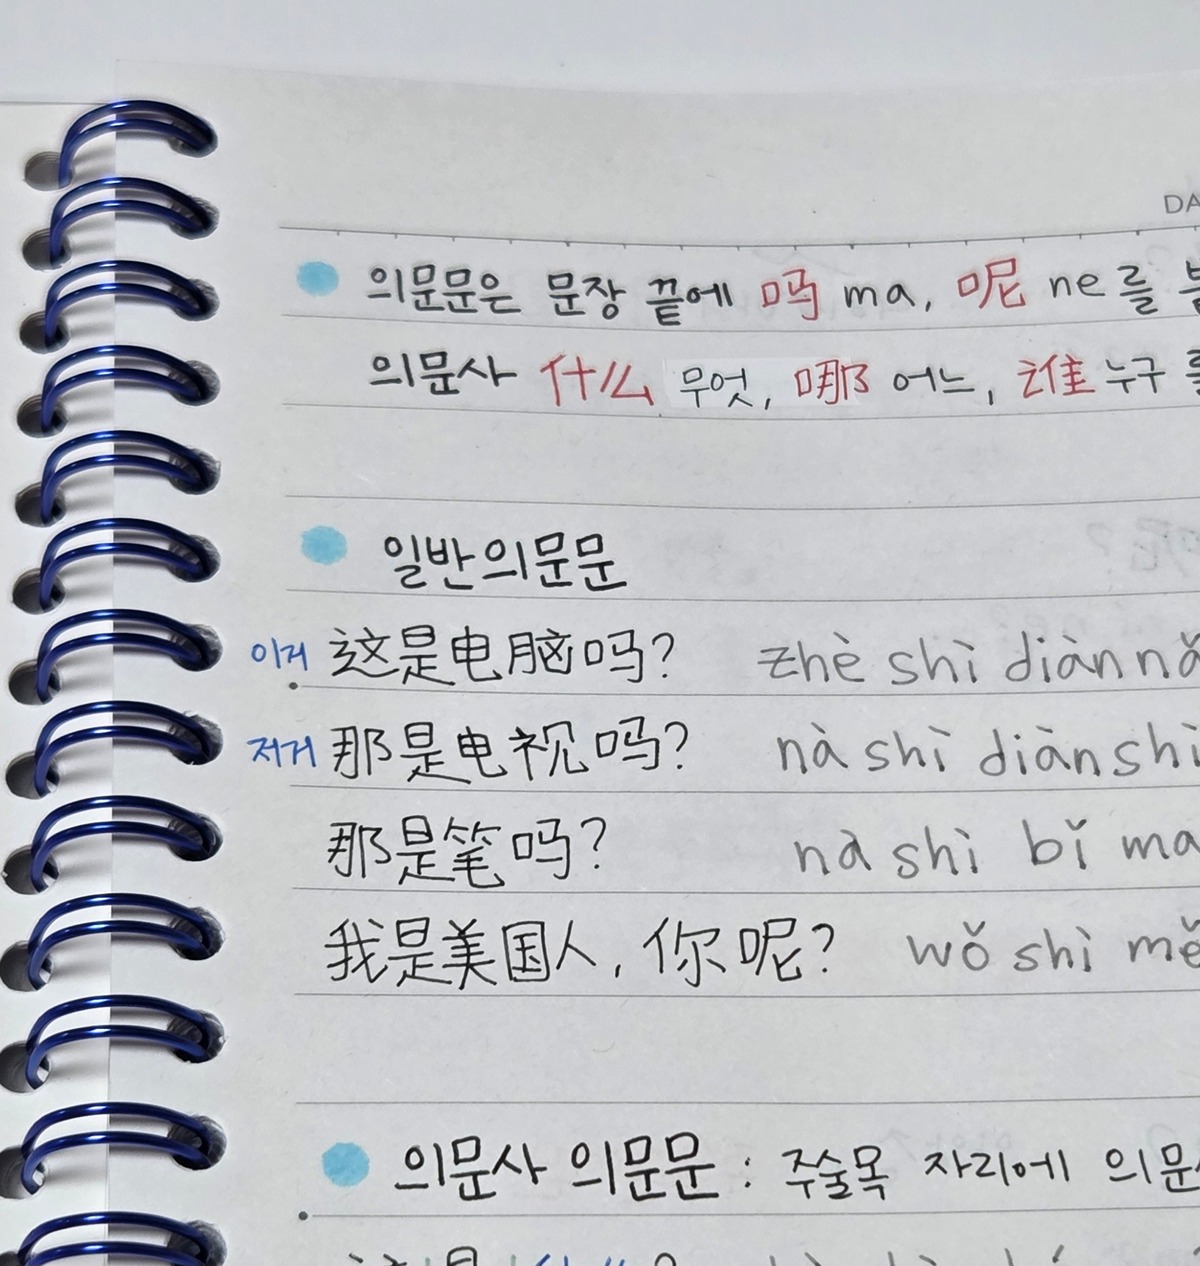 의문문은 문장 끝에 吗 ma, 呢 ne를
의문사 什么 무엇, 哪 어느, 谁 누구
일반의문문
이거 这是电脑吗? zhè shì diàn
저거 那是电视吗? nà shì diàn shì
那是笔吗? nà shì bǐ ma
我是美国人, 你呢? wǒ shì
의문사 의문문 : 주술목 자리에